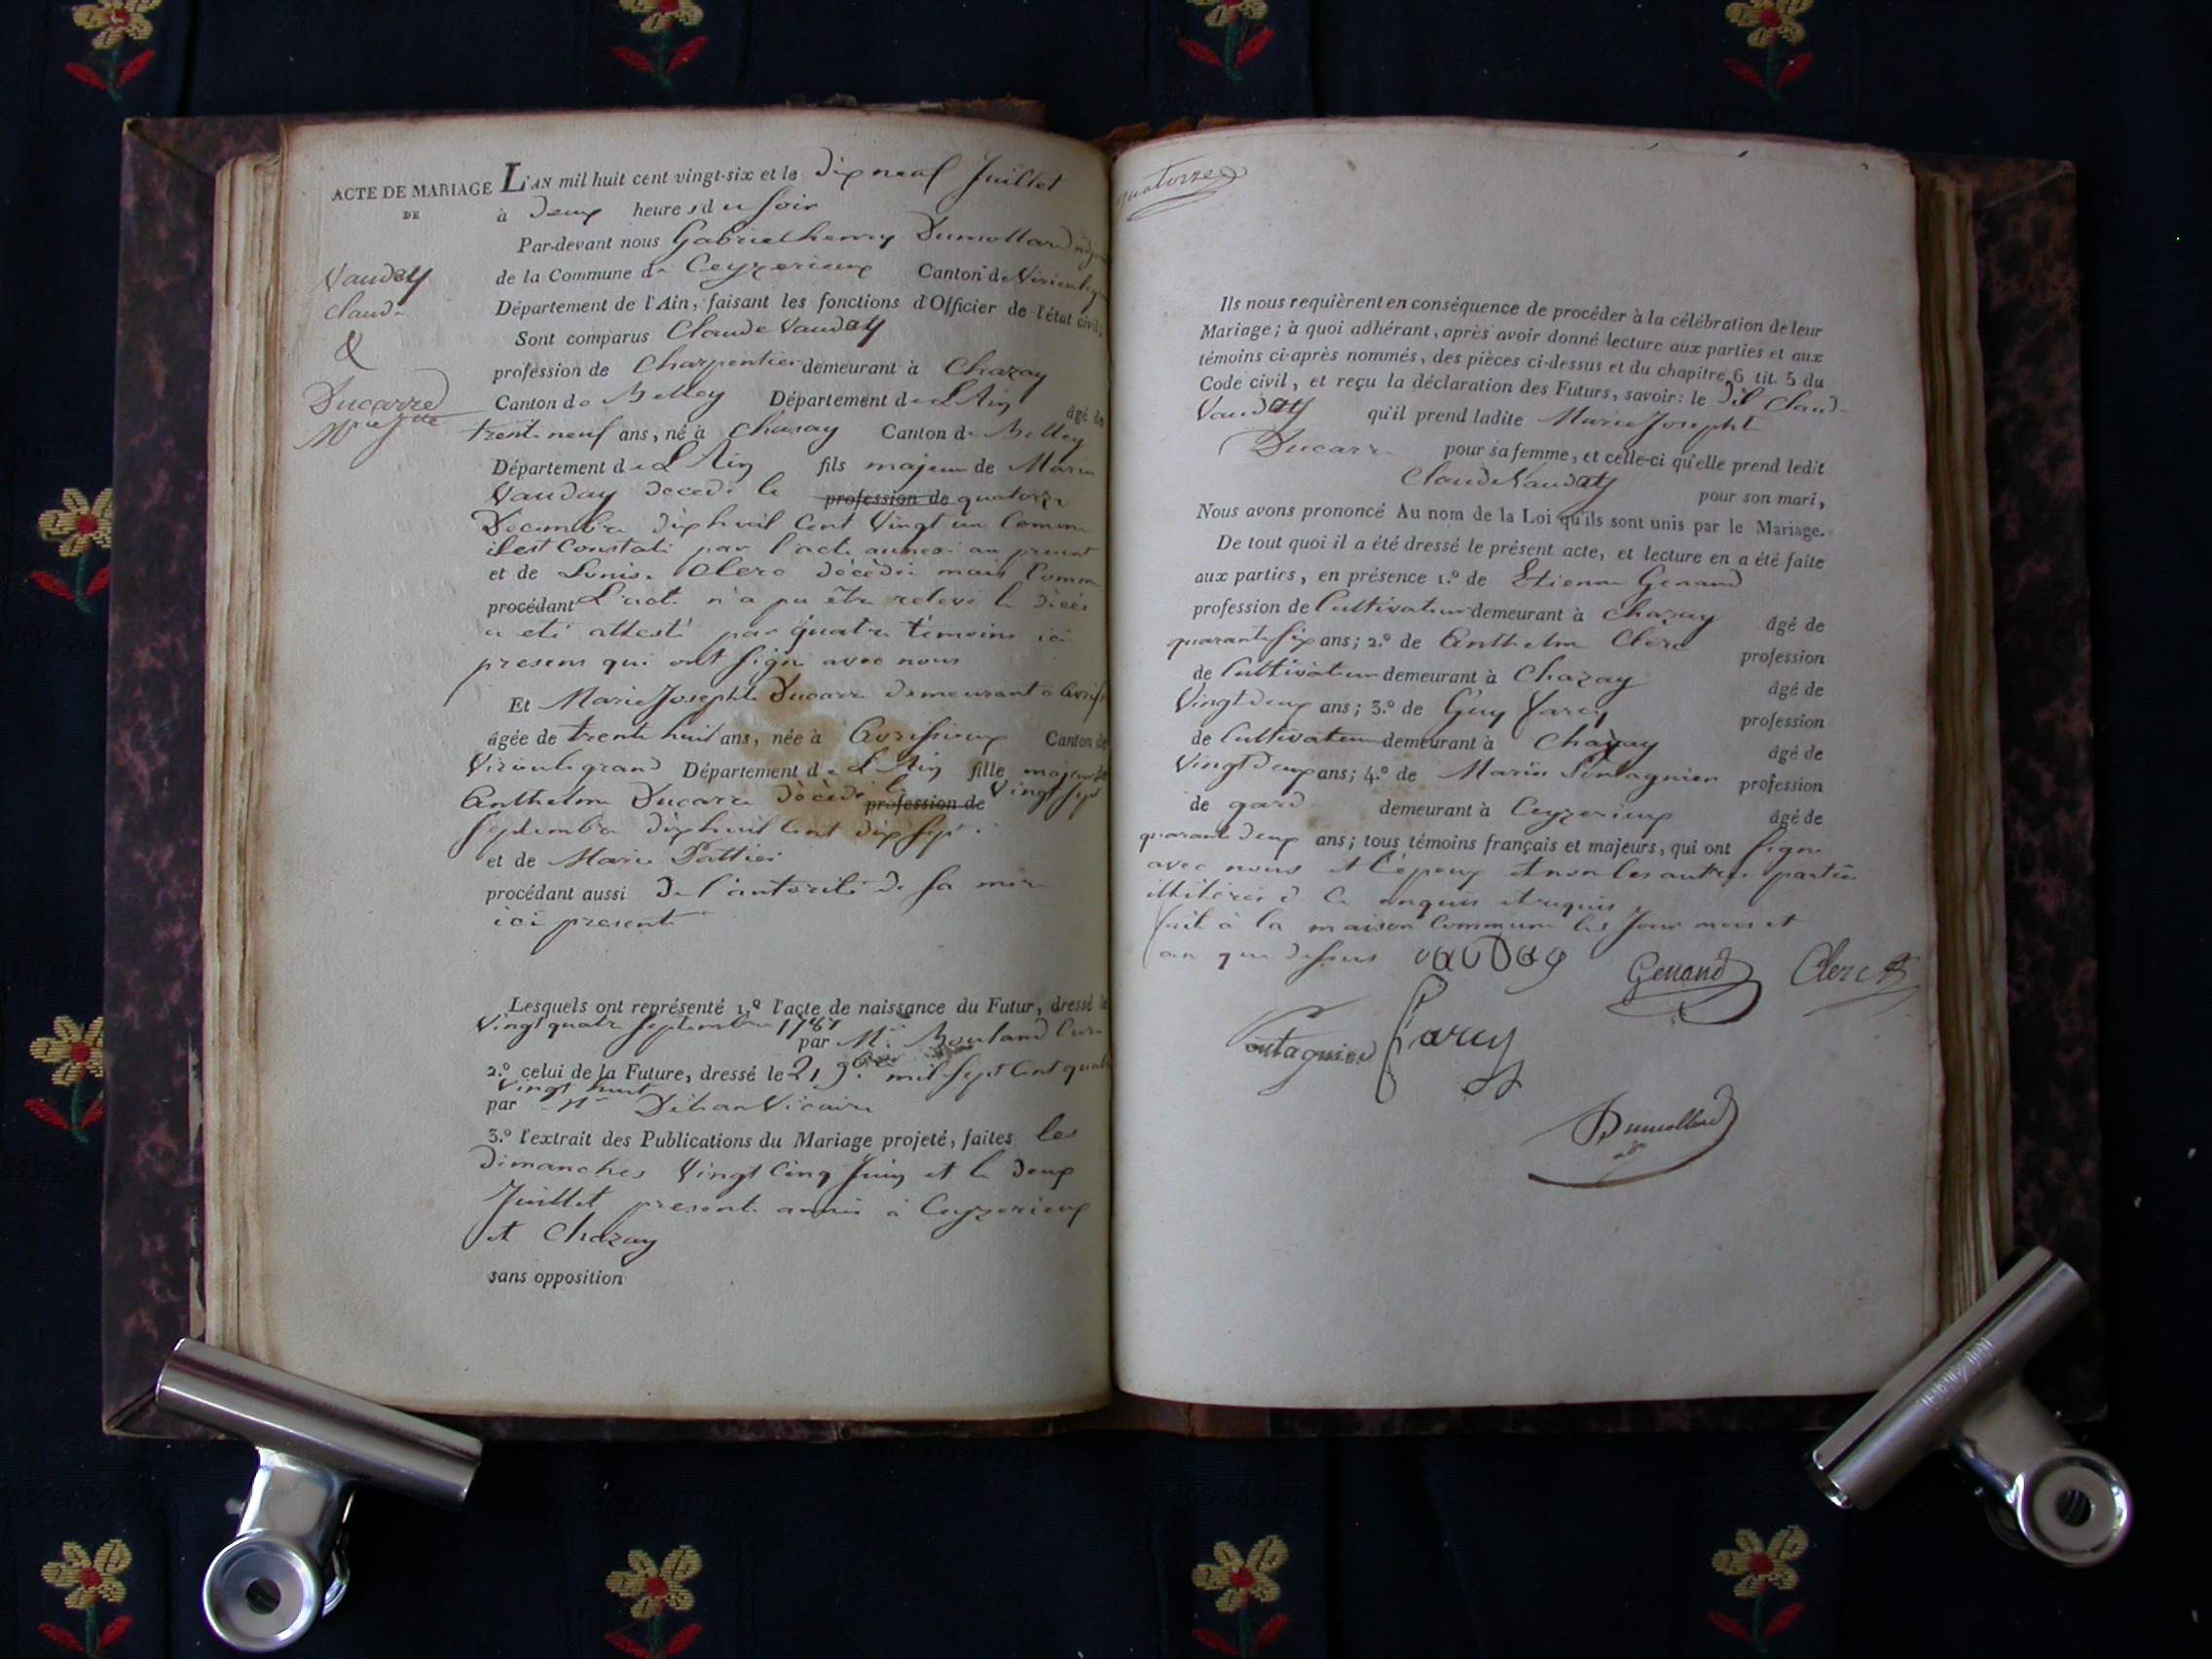 ACTE DE MARIAGE
DE
Vauday
Claude
&
Ducarre
Mie Jtte
L'AN mil huit cent vingt-six et le dix neuf Juillet
à Deux heures du soir
Par-devant nous Gabriel henry Dumollard adj
de la Commune de Ceyzerieux Canton de Virieulegrand
Département de l'Ain, faisant les fonctions d'Officier de l'état civil,
Sont comparus Claude Vauday
profession de Charpentier demeurant à Chazay
Canton de Belley Département de L'Ain âgé de
trente neuf ans, né à Chasay Canton de Belley
Département de L'Ain fils majeur de Marin
Vauday decedé le profession de quatorze
Decembre dix huit cent Vingt un Comme
il est Constaté par l'acte annexé au present
et de Louise Clerc décédée mais Comme
procédant L'acte n'a pu être relevé le décès
a eté attesté par quatre témoins ici
presens qui ont signé avec nous
Et Marie Josephte Ducarre demeurant a
âgée de trente huit ans, née à Avrissieux Canton de
Virieulegrand Département de L'Ain fille majeure de
Anthelme Ducarre décédé le profession de Vingt sept
Septembre dix huit Cent dix sept.
et de Marie Pattier
procédant aussi De l'autorité De sa mere
ici presente
Lesquels ont représenté 1.º l'acte de naissance du Futur, dressé le
Vingt quatre Septembre 1787
par Mr. Curé
2.º celui de la Future, dressé le 21 9bre mil sept Cent quatre
Vingt huit
par Mr Vicaire
3.º l'extrait des Publications du Mariage projeté, faites les
Dimanches Vingt Cinq Juin et le Deux
Juillet presente année à Ceyzerieux
et Chazay
sans opposition
quatorze
Ils nous requièrent en conséquence de procéder à la célébration de leur
Mariage; à quoi adhérant, après avoir donné lecture aux parties et aux
témoins ci-après nommés, des pièces ci-dessus et du chapitre 6 tit. 5 du
Code civil, et reçu la déclaration des Futurs, savoir: le dit Claude
Vauday qu'il prend ladite Marie Josephte
Ducarre pour sa femme, et celle-ci qu'elle prend ledit
Claude Vauday pour son mari,
Nous avons prononcé Au nom de la Loi qu'ils sont unis par le Mariage.
De tout quoi il a été dressé le présent acte, et lecture en a été faite
aux parties, en présence 1.º de Etienne Genand
profession de Cultivateur demeurant à Chazay âgé de
quarante six ans; 2.º de Anthelme Clerc profession
de Cultivateur demeurant à Chazay âgé de
Vingt deux ans; 3.º de Guy Varcy profession
de Cultivateur demeurant à Chazay âgé de
Vingt deux ans; 4.º de Marin profession
de gard demeurant à Ceyzerieux âgé de
quarante deux ans; tous témoins français et majeurs, qui ont signé
avec nous et l'époux et non les autres parties
illitérés de ce enquis et requis
fait à la maison Commune les jour mois et
an que dessus vauday Genand Clerc
Varcy
Dumollard